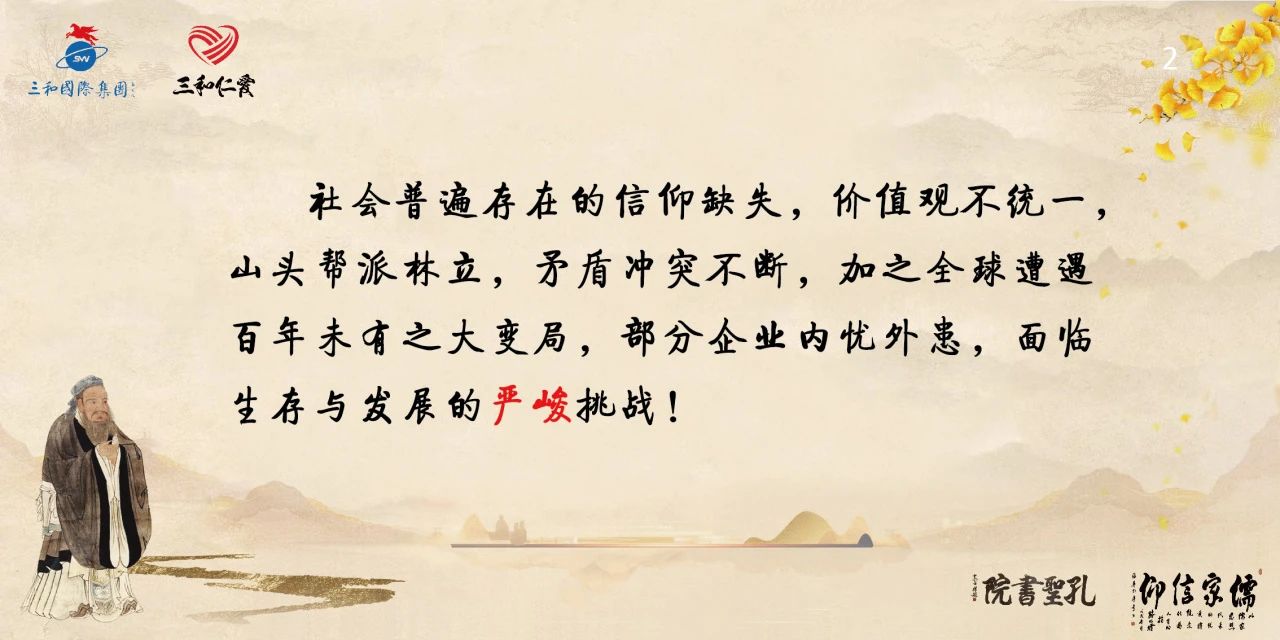 三和國際集團
三和仁爱
2
社会普遍存在的信仰缺失，价值观不统一，
山头帮派林立，矛盾冲突不断，加之全球遭遇
百年未有之大变局，部分企业内忧外患，面临
生存与发展的严峻挑战！
孔聖書院
儒家信仰